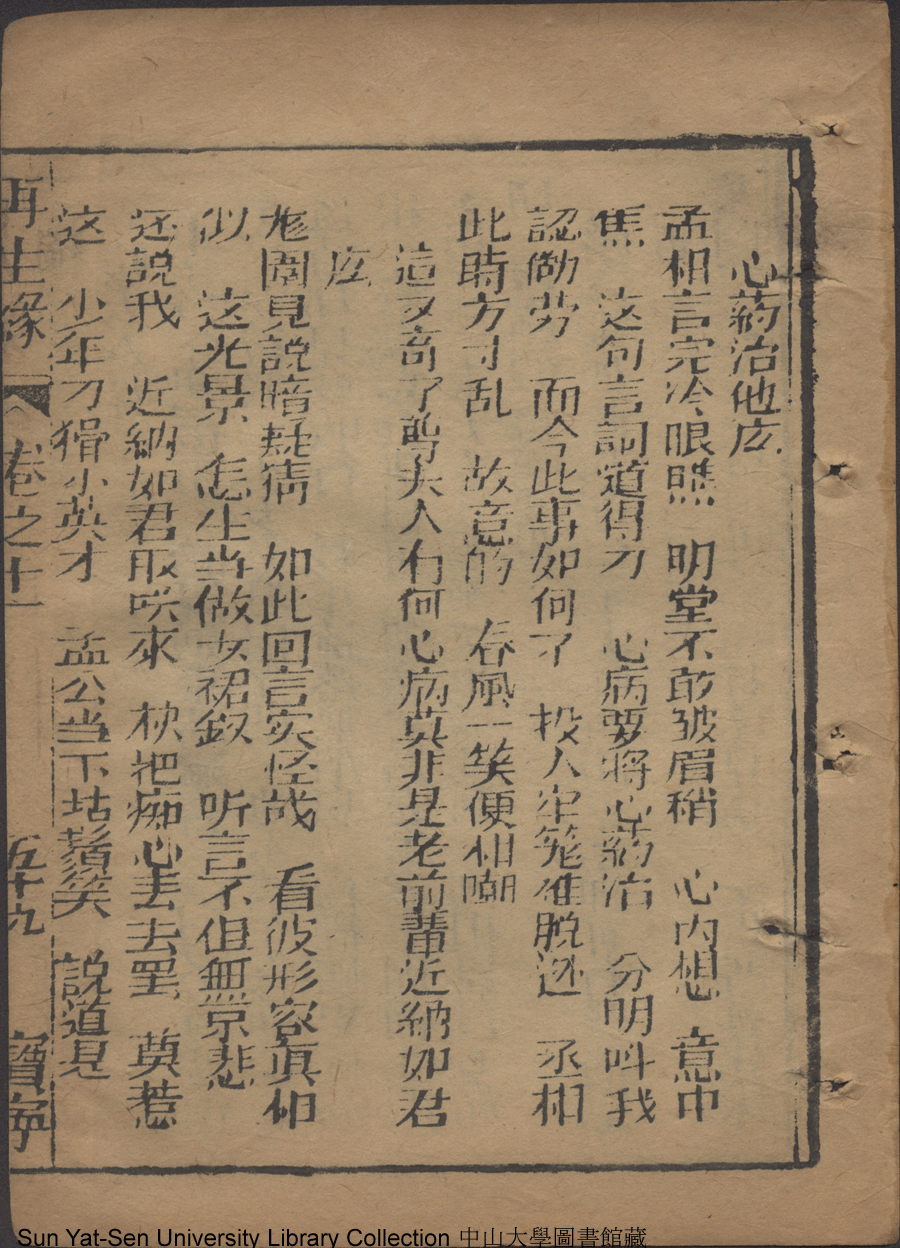 心药治他庅
孟相言完冷眼瞧　明堂不敢皱眉稍　心内想　意中
焦　这句言詞道得刁　心病要将心药治　分明呌我
認劬劳　而今此事如何了　投人牢笼难脱迯　丞相
此時方寸乱　故意的　春风一笑便相嘲
這又奇了尊夫人有何心病莫非是老前輩近納如君
庅
龙圖見説暗疑猜　如此回言实怪哉　看彼形容眞相
似　这光景　怎生当做女裙釵　听言不但無京悲
还說我　近納如君取咲來　枕把痴心丢去罢　莫惹
这　少年刁猾小英才　孟公当下拈鬚笑　説道是
再生緣　卷之十一　五十九　寳寧
Sun Yat-Sen University Library Collection 中山大學圖書館藏